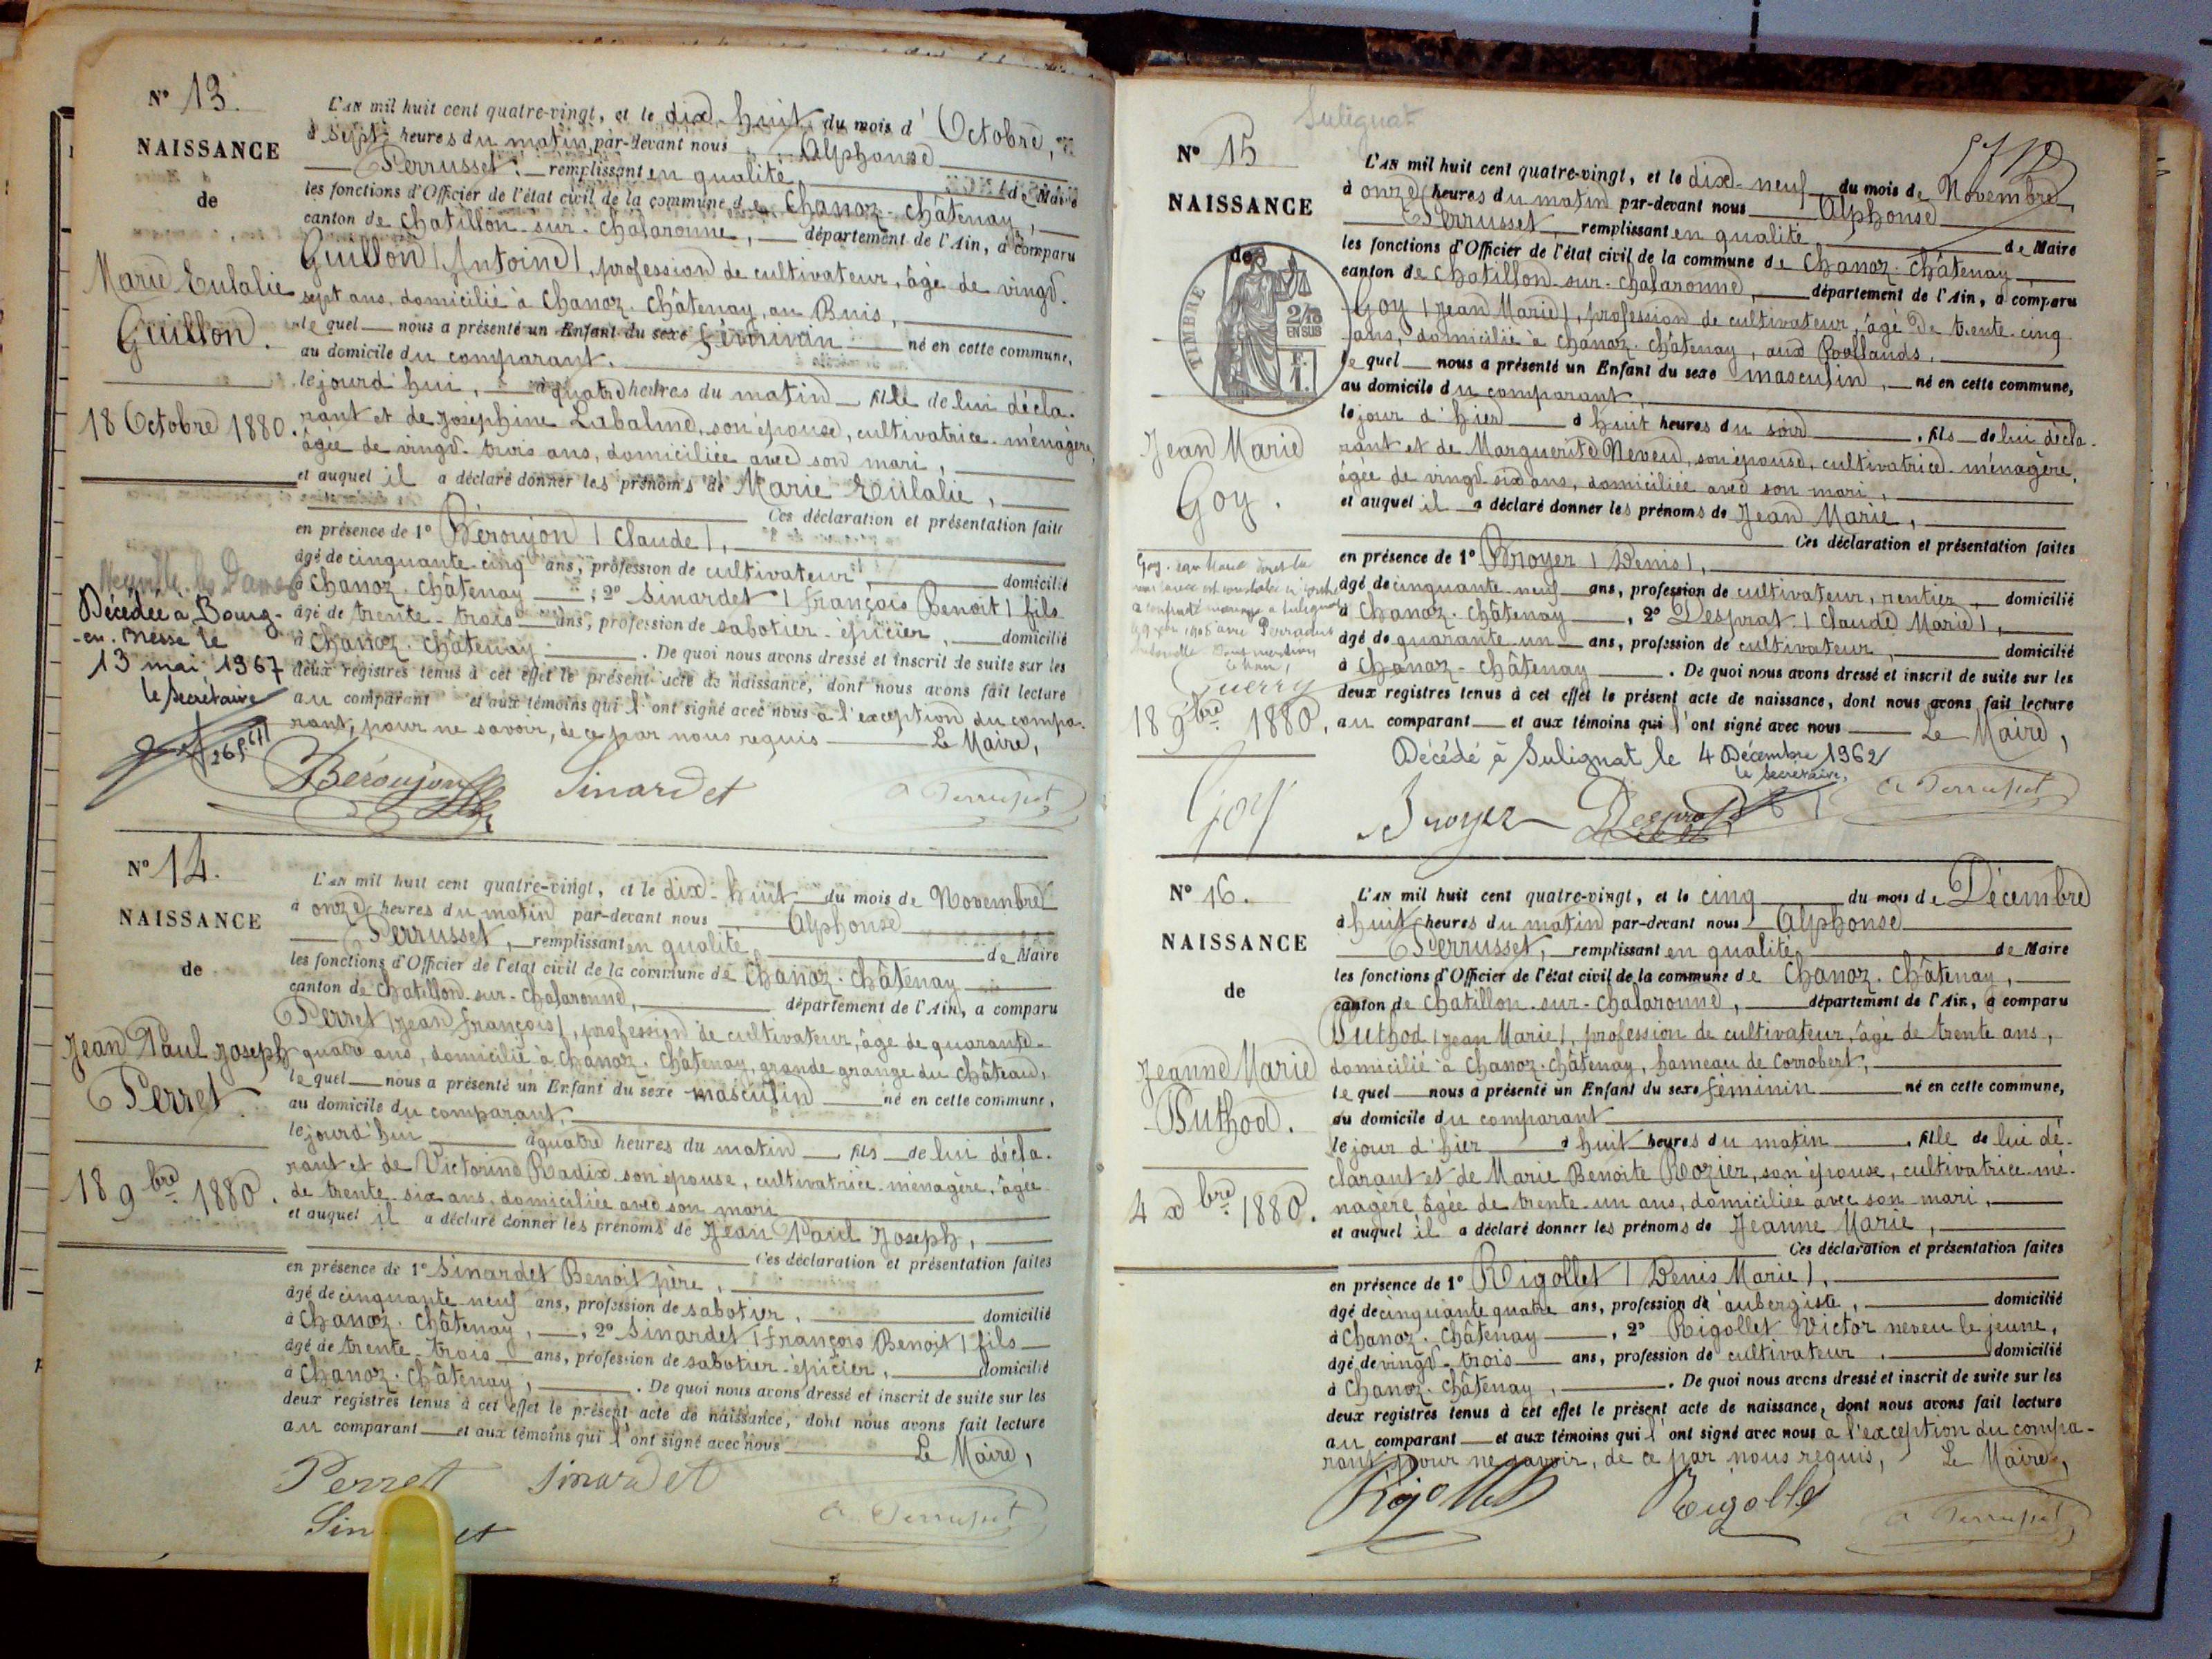 N° 13.
NAISSANCE
de
Marie Eulalie
Guillon.
18 Octobre 1880.
Neuville les Dames
Décédée à Bourg-
-en-Bresse le
13 mai 1967
le Secrétaire
L'AN mil huit cent quatre-vingt, et le dix-huit du mois d'Octobre,
à sept heures du matin, par-devant nous Alphonse
Perrusset, remplissant en qualité de Maire
les fonctions d'Officier de l'état civil de la commune de Chanoz-Châtenay,
canton de Chatillon-sur-Chalaronne, département de l'Ain, a comparu
Guillon (Antoine), profession de cultivateur, âgé de vingt-
sept ans, domicilié à Chanoz-Châtenay, au Buis,
lequel nous a présenté un Enfant du sexe féminin né en cette commune,
au domicile du comparant.
lejourd'hui, à quatre heures du matin fille de lui décla-
rant et de Joséphine Labalme, son épouse, cultivatrice-ménagère,
âgée de vingt-trois ans, domiciliée avec son mari,
et auquel il a déclaré donner les prénoms de Marie Eulalie,
Ces déclaration et présentation faites
en présence de 1° Béroujon (Claude),
âgé de cinquante-cinq ans, profession de cultivateur, domicilié
à Chanoz-Châtenay ; 2° Sinardet (François Benoit) fils
âgé de trente-trois ans, profession de sabotier-épicier, domicilié
à Chanoz-Châtenay. De quoi nous avons dressé et inscrit de suite sur les
deux registres tenus à cet effet le présent acte de naissance, dont nous avons fait lecture
au comparant et aux témoins qui l'ont signé avec nous à l'exception du compa-
rant, pour ne savoir, de ce par nous requis Le Maire,
Béroujon Sinardet A Perrusset
N° 14.
NAISSANCE
de
Jean Paul Joseph
Perret.
18 9bre 1880.
L'AN mil huit cent quatre-vingt, et le dix-huit du mois de Novembre
à onze heures du matin par-devant nous Alphonse
Perrusset, remplissant en qualité de Maire
les fonctions d'Officier de l'état civil de la commune de Chanoz-Châtenay
canton de Chatillon-sur-Chalaronne, département de l'Ain, a comparu
Perret (Jean François), profession de cultivateur, âgé de quarante-
quatre ans, domicilié à Chanoz-Châtenay, grande grange du Château,
lequel nous a présenté un Enfant du sexe masculin né en cette commune,
au domicile du comparant,
lejourd'hui à quatre heures du matin fils de lui décla-
rant et de Victorine Radix son épouse, cultivatrice-ménagère, âgée
de trente-six ans, domiciliée avec son mari
et auquel il a déclaré donner les prénoms de Jean Paul Joseph,
Ces déclaration et présentation faites
en présence de 1° Sinardet Benoit père,
âgé de cinquante-neuf ans, profession de sabotier, domicilié
à Chanoz-Châtenay, 2° Sinardet (François Benoit) fils
âgé de trente-trois ans, profession de sabotier-épicier, domicilié
à Chanoz-Châtenay, . De quoi nous avons dressé et inscrit de suite sur les
deux registres tenus à cet effet le présent acte de naissance, dont nous avons fait lecture
au comparant et aux témoins qui l'ont signé avec nous Le Maire,
Perret Sinardet
A Perrusset
Sulignat
N° 15
NAISSANCE
de
TIMBRE
EN SUS
Jean Marie
Goy.
Guerry
18 9bre 1880.
L'AN mil huit cent quatre-vingt, et le dix-neuf du mois de Novembre,
à onze heures du matin par-devant nous Alphonse
Perrusset, remplissant en qualité de Maire
les fonctions d'Officier de l'état civil de la commune de Chanoz-Châtenay,
canton de Chatillon-sur-Chalaronne, département de l'Ain, a comparu
Goy (Jean Marie), profession de cultivateur, âgé de trente-cinq
ans, domicilié à Chanoz-Châtenay, aux
lequel nous a présenté un Enfant du sexe masculin, né en cette commune,
au domicile du comparant,
lejour d'hier à huit heures du soir, fils de lui décla-
rant et de Marguerite Neveu, son épouse, cultivatrice-ménagère,
âgée de vingt-six ans, domiciliée avec son mari,
et auquel il a déclaré donner les prénoms de Jean Marie,
Ces déclaration et présentation faites
en présence de 1° Broyer (Denis),
âgé de cinquante-neuf ans, profession de cultivateur, rentier, domicilié
à Chanoz-Châtenay, 2° Desprat (Claude Marie),
âgé de quarante-un ans, profession de cultivateur, domicilié
à Chanoz-Châtenay. De quoi nous avons dressé et inscrit de suite sur les
deux registres tenus à cet effet le présent acte de naissance, dont nous avons fait lecture
au comparant et aux témoins qui l'ont signé avec nous Le Maire,
Décédé à Sulignat le 4 Décembre 1962
le Secrétaire,
Goy Broyer Desprat A Perrusset
N° 16.
NAISSANCE
de
Jeanne Marie
Buthod.
4 xbre 1880.
L'AN mil huit cent quatre-vingt, et le cinq du mois de Décembre
à huit heures du matin par-devant nous Alphonse
Perrusset, remplissant en qualité de Maire
les fonctions d'Officier de l'état civil de la commune de Chanoz-Châtenay,
canton de Chatillon-sur-Chalaronne, département de l'Ain, a comparu
Buthod (Jean Marie), profession de cultivateur, âgé de trente ans,
domicilié à Chanoz-Châtenay, hameau de Corrobert,
lequel nous a présenté un Enfant du sexe féminin né en cette commune,
au domicile du comparant
lejour d'hier à huit heures du matin, fille de lui dé-
clarant et de Marie Benoite Rozier, son épouse, cultivatrice-mé-
nagère âgée de trente-un ans, domiciliée avec son mari,
et auquel il a déclaré donner les prénoms de Jeanne Marie,
Ces déclaration et présentation faites
en présence de 1° Rigollet (Denis Marie),
âgé de cinquante quatre ans, profession d'aubergiste, domicilié
à Chanoz-Châtenay, 2° Rigollet Victor neveu le jeune,
âgé de vingt-trois ans, profession de cultivateur, domicilié
à Chanoz-Châtenay, . De quoi nous avons dressé et inscrit de suite sur les
deux registres tenus à cet effet le présent acte de naissance, dont nous avons fait lecture
au comparant et aux témoins qui l'ont signé avec nous à l'exception du compa-
rant, pour ne savoir, de ce par nous requis, Le Maire,
Rigollet Rigollet A Perrusset